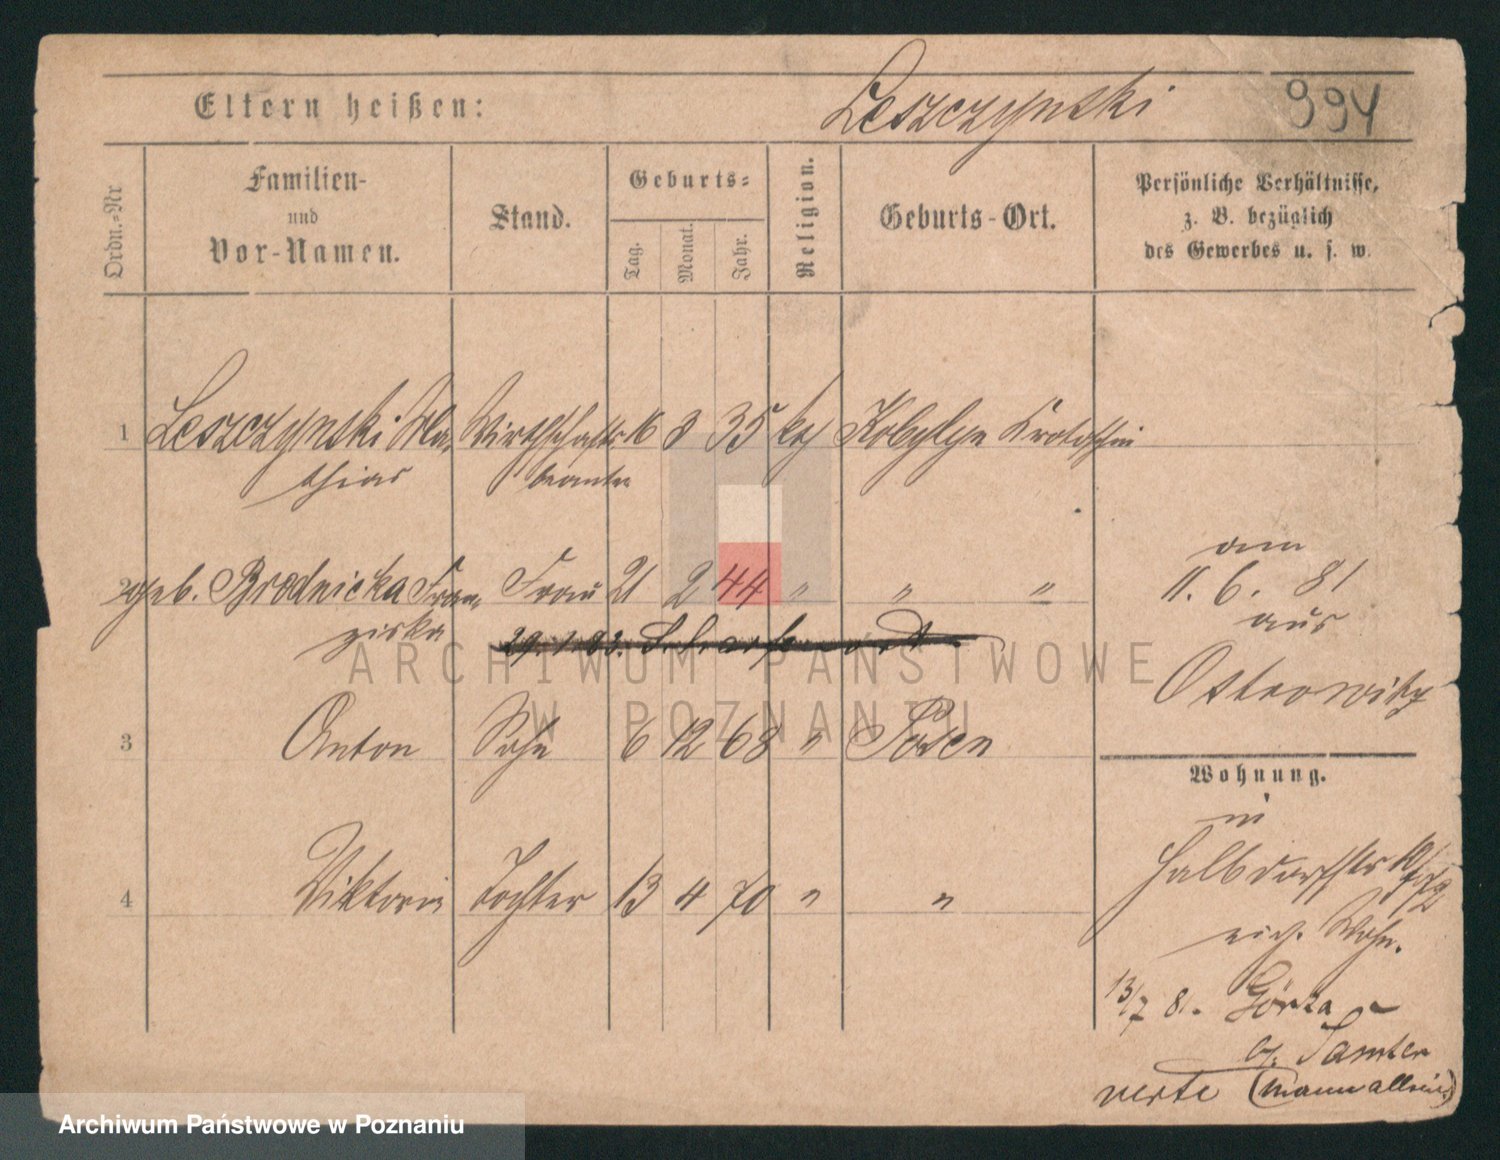 Eltern heißen:
Leszczynski
994
Ordn.=Nr
Familien-
und
Vor-Namen.
Stand.
Geburts=
Tag.
Monat.
Jahr.
Religion.
Geburts-Ort.
Persönliche Verhältnisse,
z. B. bezüglich
des Gewerbes u. s. w.
1 Leszczynski Ma- Wirthschafts 16 3 35 kth Kobylyn Krotoschin
thias beamter
2 geb. Brodnicka Fran- Frau 21 2 44 " " "
ziska
am
11. 6. 81
aus
3 Anton Sohn 6 12 68 " Posen
Wohnung.
in
Halbdorfstr
4 Viktoria Tochter 13 4 70 " "
Wohn.
13/7 81. Górka
b/. Samter
verte (Mann allein)
ARCHIWUM PAŃSTWOWE
W POZNANIU
Archiwum Państwowe w Poznaniu